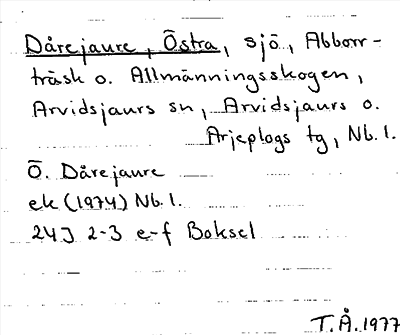 Dårejaure, Östra, sjö, Abborr-
träsk o. Allmänningsskogen,
Arvidsjaurs sn, Arvidsjaurs o.
Arjeplogs tg, Nb. l.
Ö. Dårejaure
ek (1974) Nb. l.
24J 2-3 e-f Boksel
T.Å. 1977